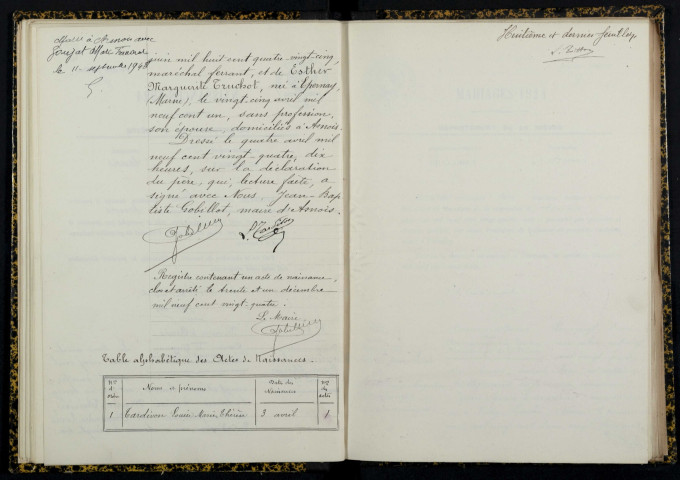 à Asnois avec
le 11 septembre 1948
juin mil huit cent quatre vingt-cinq,
maréchal ferrant, et de Esther
Marguerite Truchot, née à Epernay,
(Marne), le vingt-cinq avril mil
neuf cent un, sans profession,
son épouse, domiciliés à Asnois.
Dressé le quatre avril mil
neuf cent vingt-quatre, dix
heures, sur la déclaration
du père, qui, lecture faite, a
signé avec Nous, Jean-Bap
tiste Gobillot, maire d'Asnois.
Registre contenant un acte de naissance,
clos et arrêté le trente et un décembre
mil neuf cent vingt-quatre.
Le Maire
Table alphabétique des Actes de Naissances.
Nos d' ordre
Noms et prénoms
Date des Naissances
Nos des actes
1 Tardivon Louise Marie Thérèse 3 avril 1
Huitième et dernier feuillet